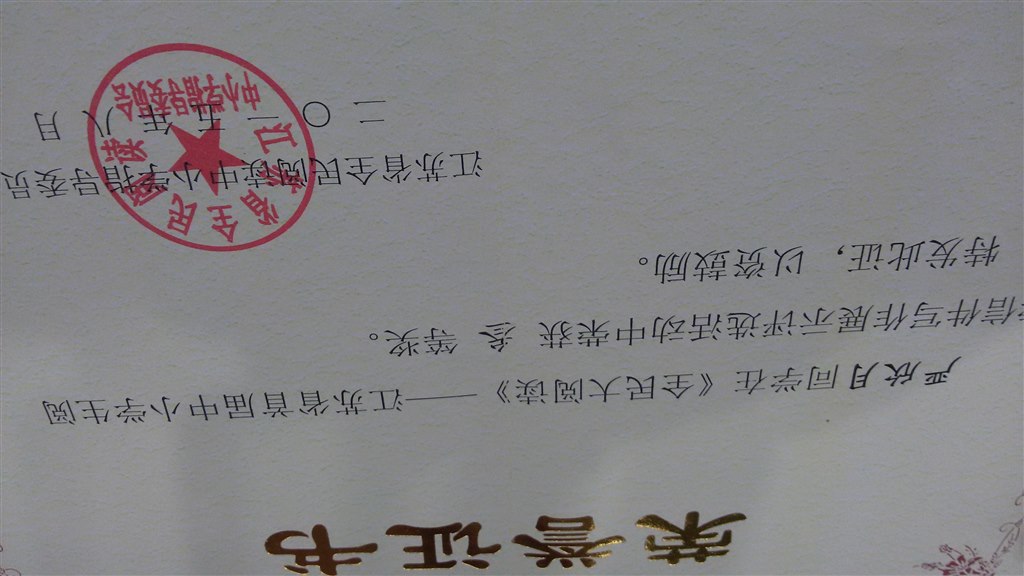 荣誉证书
严欣月同学在《全民大阅读》——江苏省首届中小学生阅
信件写作展示评选活动中荣获 叁 等奖。
特发此证，以资鼓励。
江苏省全民阅读中小学指导委员
二〇一五年八月
江苏省全民阅读
中小学指导委员会